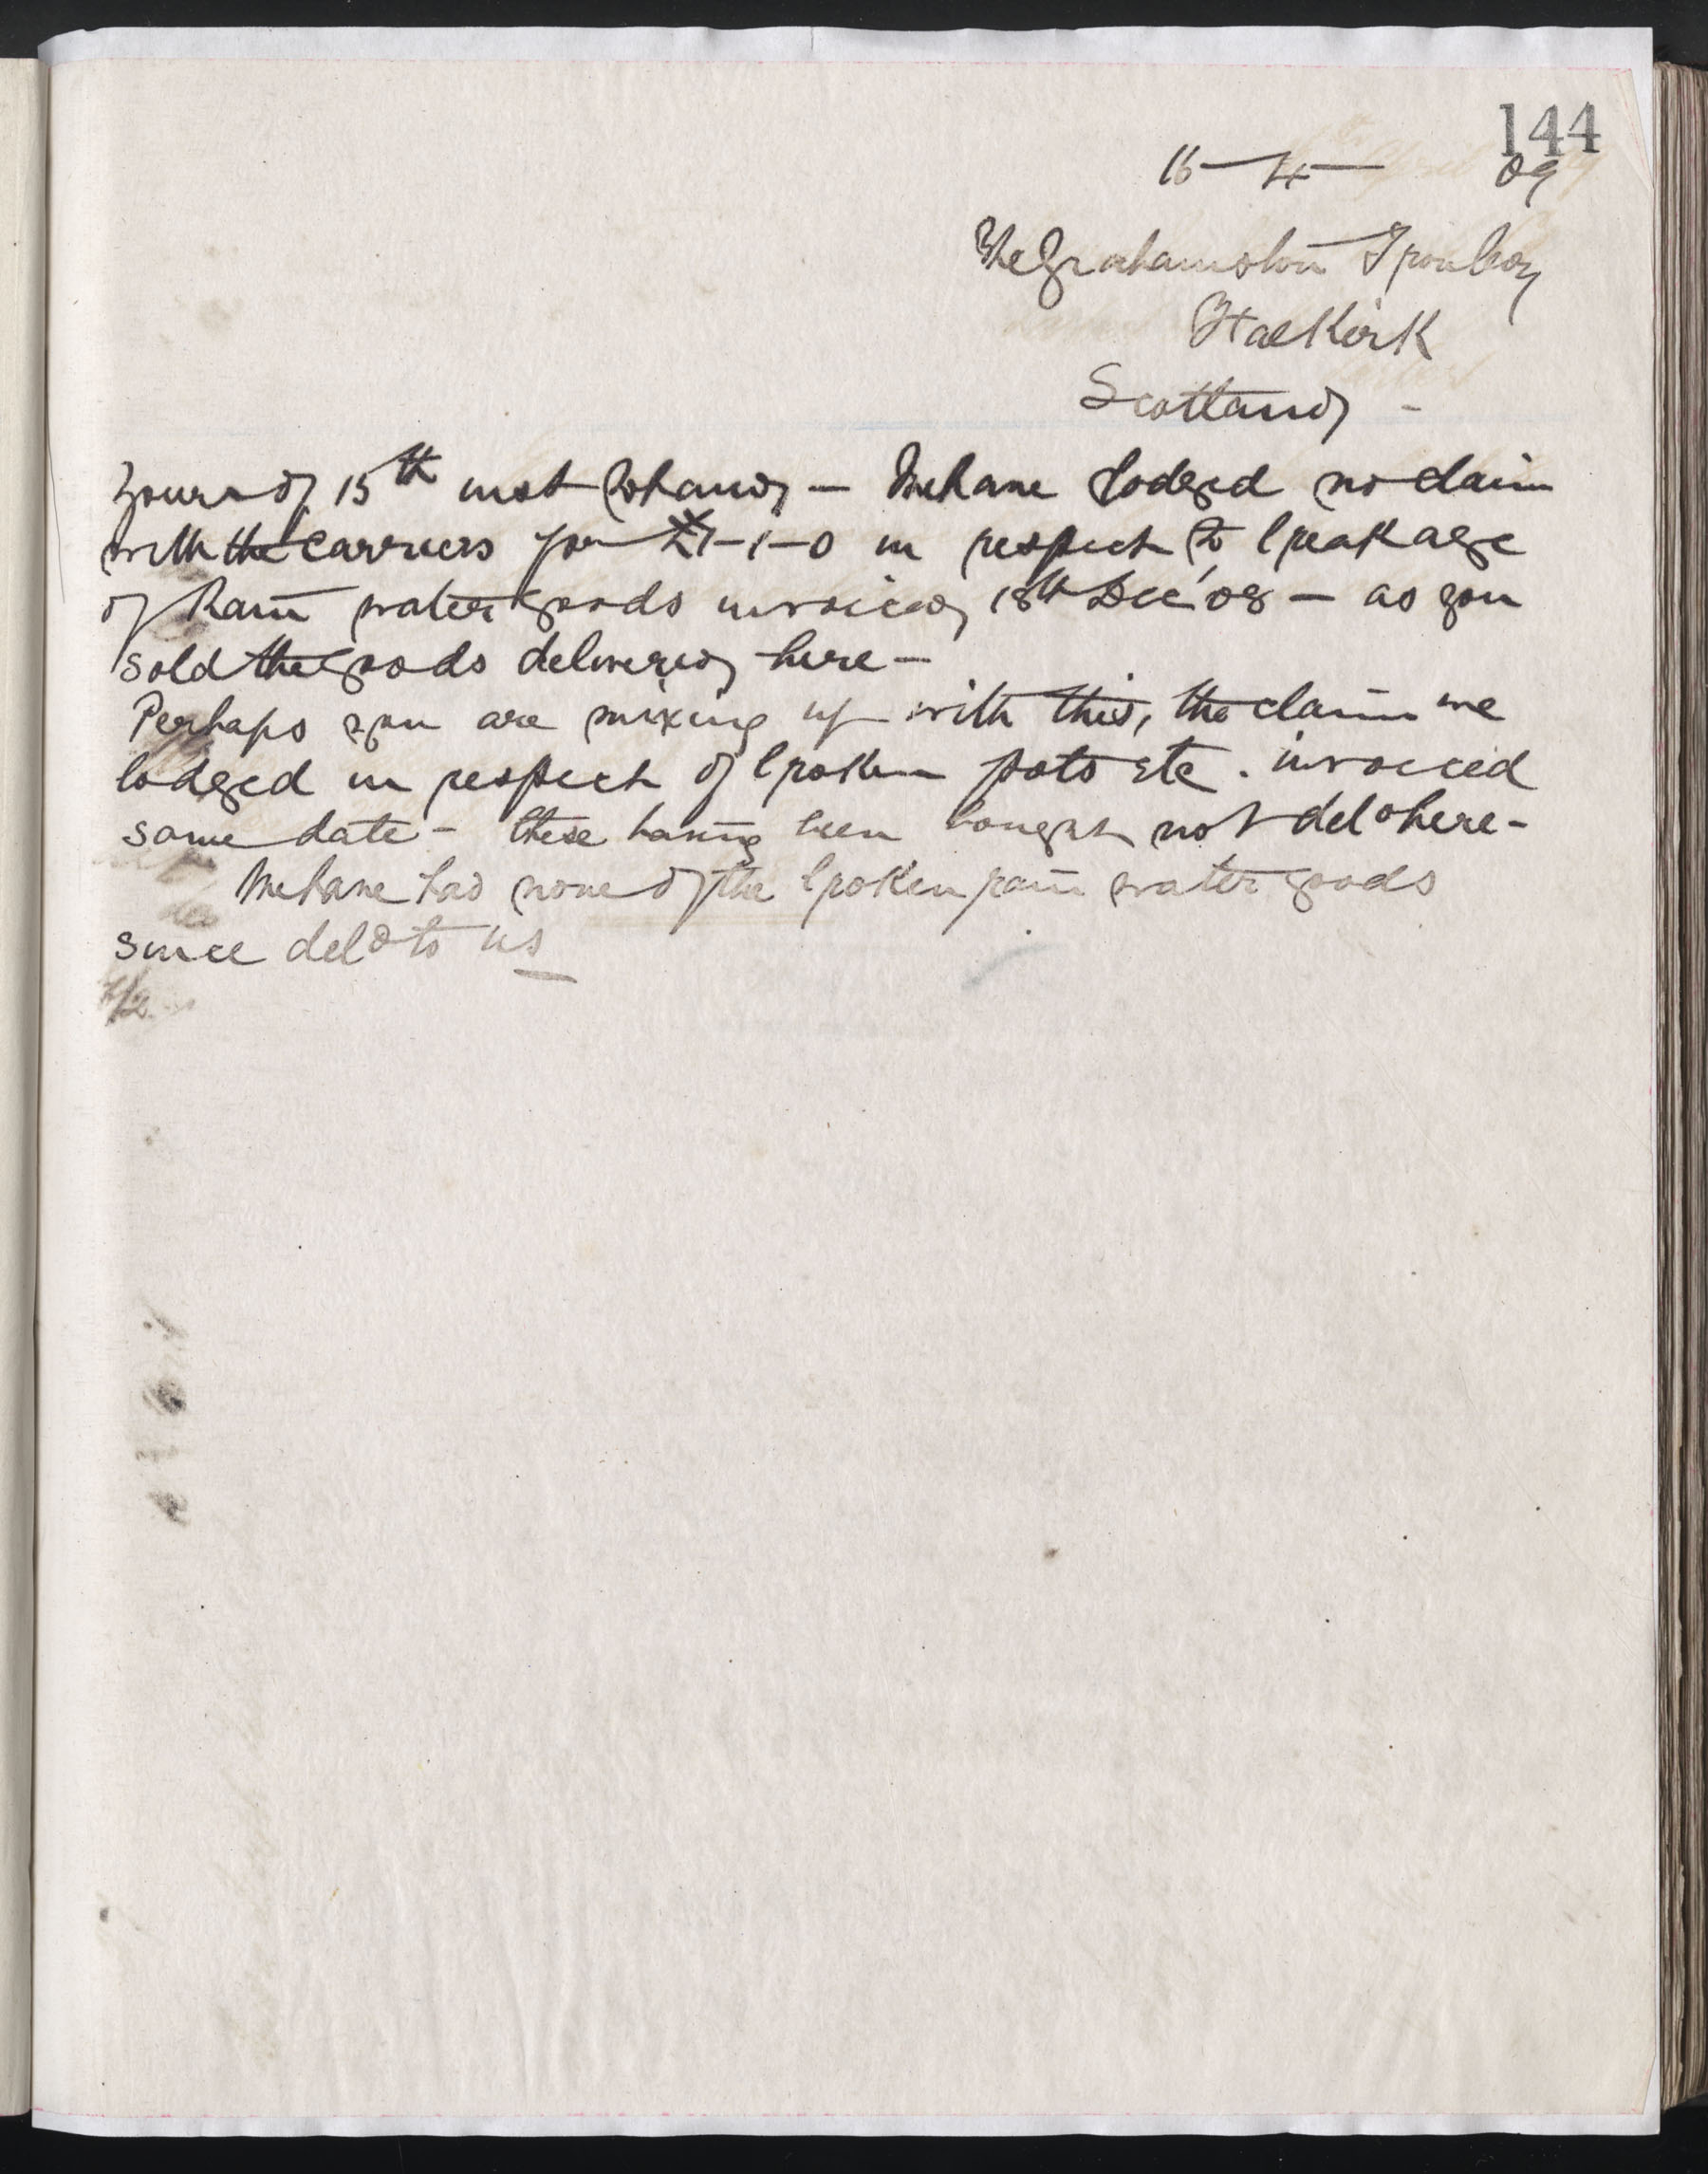 144
16-4-09
The Grahamston Iron Coy
Falkirk
Scotland -
Yours of 15th inst to hand — We have lodged no claim
with the carriers for £1-1-0 in respect to breakage
of Rain water goods invoiced 18th Dec '08 — as you
sold the goods delivered here —
Perhaps you are mixing up with this, the claim we
lodged in respect of broken pots etc. invoiced
same date - these having been bought not deld here -
We have had none of the broken rain water goods
since deld to us